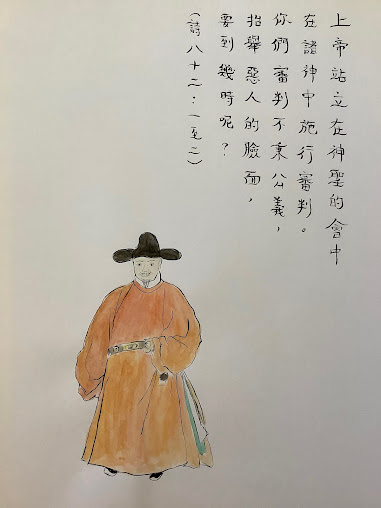 上帝站立在神聖的會中
在諸神中施行審判。
你們審判不秉公義，
抬舉惡人的臉面，
要到幾時呢？
（詩八十二：一至二）